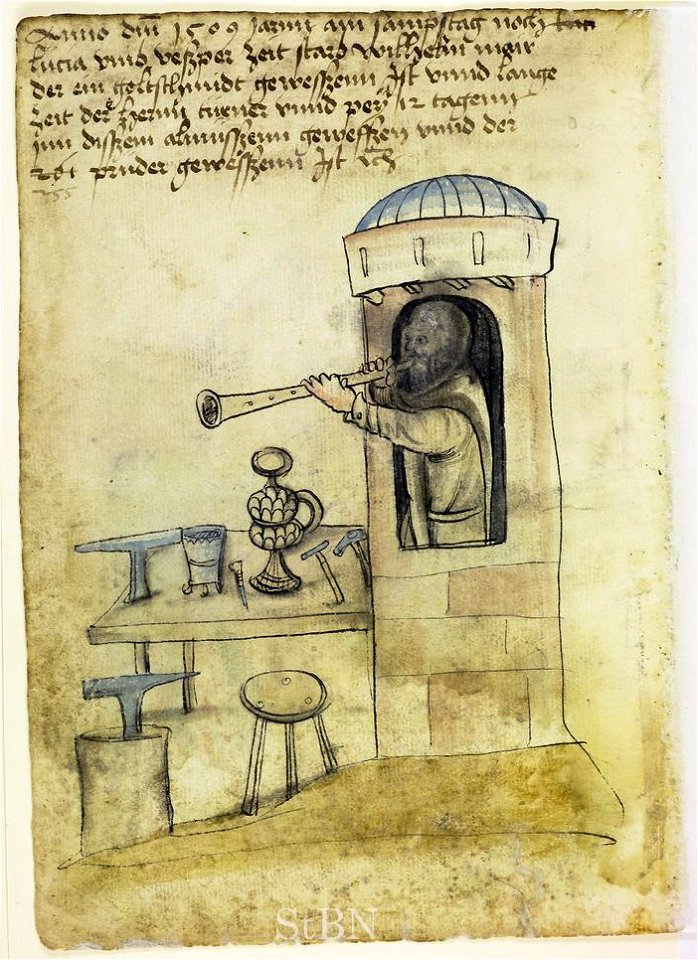 Anno dm̄ 1509 Jarnn am sampstag noch
lucia vmb veszper zeit starb wilhelm mair
der ein goltschmidt geweszenn ist vnnd lange
zeit der hernn turner vnnd peÿ 12 tagenn
jnn diszem almuszenn geweszen vnnd der
prúder geweszenn ist
255
StBN